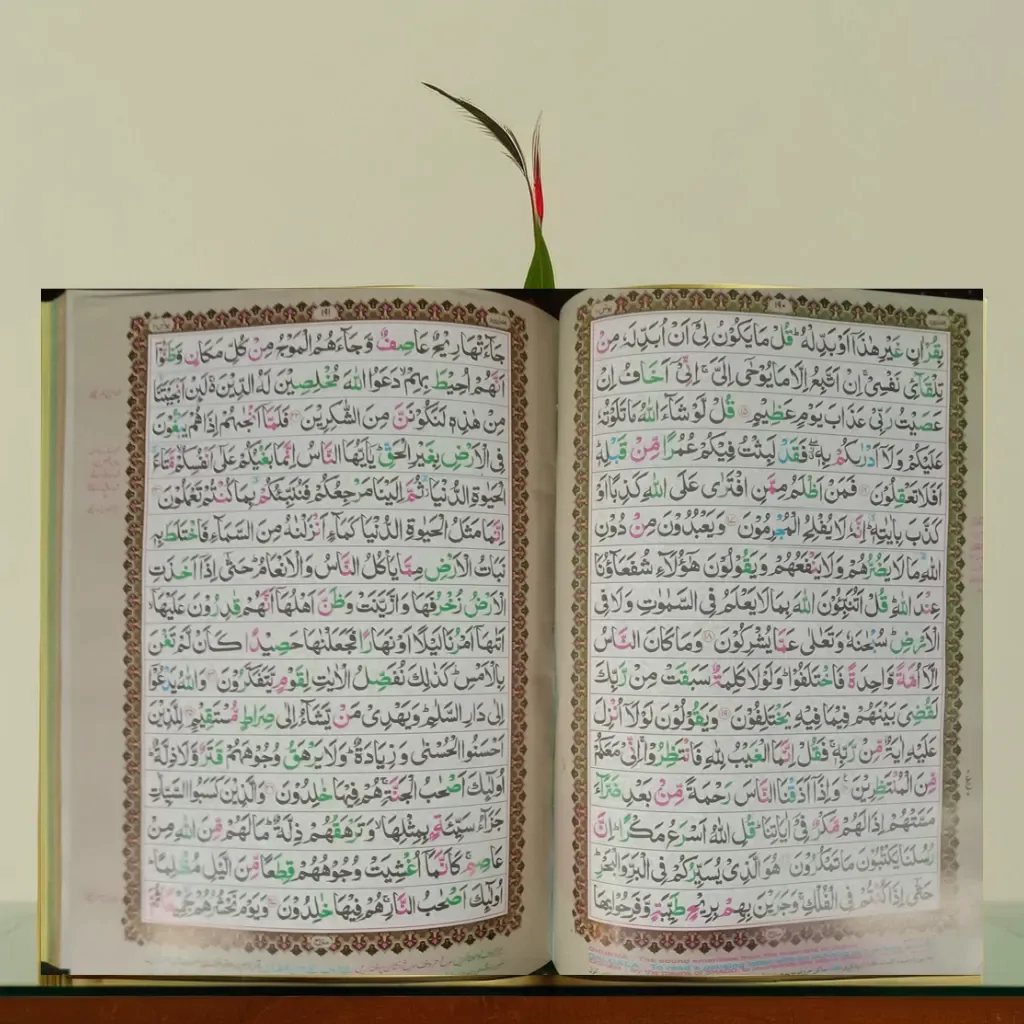 بِقُرْاٰنٍ غَيْرِ هٰذَاۤ اَوْ بَدِّلْهُ ؕ قُلْ مَا يَكُوْنُ لِيْۤ اَنْ اُبَدِّلَهٗ مِنْ
تِلْقَآئِ نَفْسِيْ ۚ اِنْ اَتَّبِعُ اِلَّا مَا يُوْحٰۤى اِلَيَّ ۚ اِنِّيْۤ اَخَافُ اِنْ
عَصَيْتُ رَبِّيْ عَذَابَ يَوْمٍ عَظِيْمٍ ۝ قُلْ لَّوْ شَآءَ اللّٰهُ مَا تَلَوْتُهٗ
عَلَيْكُمْ وَلَاۤ اَدْرٰىكُمْ بِهٖ ۖ فَقَدْ لَبِثْتُ فِيْكُمْ عُمُرًا مِّنْ قَبْلِهٖ ؕ
اَفَلَا تَعْقِلُوْنَ ۝ فَمَنْ اَظْلَمُ مِمَّنِ افْتَرٰى عَلَى اللّٰهِ كَذِبًا اَوْ
كَذَّبَ بِاٰيٰتِهٖ ؕ اِنَّهٗ لَا يُفْلِحُ الْمُجْرِمُوْنَ ۝ وَيَعْبُدُوْنَ مِنْ دُوْنِ
اللّٰهِ مَا لَا يَضُرُّهُمْ وَلَا يَنْفَعُهُمْ وَيَقُوْلُوْنَ هٰۤؤُلَآءِ شُفَعَآؤُنَا
عِنْدَ اللّٰهِ ؕ قُلْ اَتُنَبِّئُوْنَ اللّٰهَ بِمَا لَا يَعْلَمُ فِي السَّمٰوٰتِ وَلَا فِي
الْاَرْضِ ؕ سُبْحٰنَهٗ وَتَعٰلٰى عَمَّا يُشْرِكُوْنَ ۝ وَمَا كَانَ النَّاسُ
اِلَّاۤ اُمَّةً وَّاحِدَةً فَاخْتَلَفُوْا ؕ وَلَوْلَا كَلِمَةٌ سَبَقَتْ مِنْ رَّبِّكَ
لَقُضِيَ بَيْنَهُمْ فِيْمَا فِيْهِ يَخْتَلِفُوْنَ ۝ وَيَقُوْلُوْنَ لَوْلَاۤ اُنْزِلَ
عَلَيْهِ اٰيَةٌ مِّنْ رَّبِّهٖ ۚ فَقُلْ اِنَّمَا الْغَيْبُ لِلّٰهِ فَانْتَظِرُوْا ۚ اِنِّيْ مَعَكُمْ
مِّنَ الْمُنْتَظِرِيْنَ ۝ وَاِذَاۤ اَذَقْنَا النَّاسَ رَحْمَةً مِّنْۢ بَعْدِ ضَرَّآءَ
مَسَّتْهُمْ اِذَا لَهُمْ مَّكْرٌ فِيْۤ اٰيَاتِنَا ؕ قُلِ اللّٰهُ اَسْرَعُ مَكْرًا ؕ اِنَّ
رُسُلَنَا يَكْتُبُوْنَ مَا تَمْكُرُوْنَ ۝ هُوَ الَّذِيْ يُسَيِّرُكُمْ فِي الْبَرِّ وَالْبَحْرِ ؕ
حَتّٰۤى اِذَا كُنْتُمْ فِي الْفُلْكِ ۚ وَجَرَيْنَ بِهِمْ بِرِيْحٍ طَيِّبَةٍ وَّفَرِحُوْا بِهَا
جَآءَتْهَا رِيْحٌ عَاصِفٌ وَّجَآءَهُمُ الْمَوْجُ مِنْ كُلِّ مَكَانٍ وَّظَنُّوْۤا
اَنَّهُمْ اُحِيْطَ بِهِمْ ۙ دَعَوُا اللّٰهَ مُخْلِصِيْنَ لَهُ الدِّيْنَ ۚ لَئِنْ اَنْجَيْتَنَا
مِنْ هٰذِهٖ لَنَكُوْنَنَّ مِنَ الشّٰكِرِيْنَ ۝ فَلَمَّاۤ اَنْجٰىهُمْ اِذَا هُمْ يَبْغُوْنَ
فِي الْاَرْضِ بِغَيْرِ الْحَقِّ ؕ يٰۤاَيُّهَا النَّاسُ اِنَّمَا بَغْيُكُمْ عَلٰۤى اَنْفُسِكُمْ ۙ مَّتَاعَ
الْحَيٰوةِ الدُّنْيَا ۫ ثُمَّ اِلَيْنَا مَرْجِعُكُمْ فَنُنَبِّئُكُمْ بِمَا كُنْتُمْ تَعْمَلُوْنَ ۝
اِنَّمَا مَثَلُ الْحَيٰوةِ الدُّنْيَا كَمَآءٍ اَنْزَلْنٰهُ مِنَ السَّمَآءِ فَاخْتَلَطَ بِهٖ
نَبَاتُ الْاَرْضِ مِمَّا يَاْكُلُ النَّاسُ وَالْاَنْعَامُ ؕ حَتّٰۤى اِذَاۤ اَخَذَتِ
الْاَرْضُ زُخْرُفَهَا وَازَّيَّنَتْ وَظَنَّ اَهْلُهَاۤ اَنَّهُمْ قٰدِرُوْنَ عَلَيْهَاۤ ۙ
اَتٰىهَاۤ اَمْرُنَا لَيْلًا اَوْ نَهَارًا فَجَعَلْنٰهَا حَصِيْدًا كَاَنْ لَّمْ تَغْنَ
بِالْاَمْسِ ؕ كَذٰلِكَ نُفَصِّلُ الْاٰيٰتِ لِقَوْمٍ يَّتَفَكَّرُوْنَ ۝ وَاللّٰهُ يَدْعُوْۤا
اِلٰى دَارِ السَّلٰمِ ؕ وَيَهْدِيْ مَنْ يَّشَآءُ اِلٰى صِرَاطٍ مُّسْتَقِيْمٍ ۝ لِلَّذِيْنَ
اَحْسَنُوا الْحُسْنٰى وَزِيَادَةٌ ؕ وَلَا يَرْهَقُ وُجُوْهَهُمْ قَتَرٌ وَّلَا ذِلَّةٌ ؕ
اُولٰٓئِكَ اَصْحٰبُ الْجَنَّةِ ۚ هُمْ فِيْهَا خٰلِدُوْنَ ۝ وَالَّذِيْنَ كَسَبُوا السَّيِّاٰتِ
جَزَآءُ سَيِّئَةٍۭ بِمِثْلِهَا ۙ وَتَرْهَقُهُمْ ذِلَّةٌ ؕ مَا لَهُمْ مِّنَ اللّٰهِ مِنْ
عَاصِمٍ ۚ كَاَنَّمَاۤ اُغْشِيَتْ وُجُوْهُهُمْ قِطَعًا مِّنَ الَّيْلِ مُظْلِمًا ؕ
اُولٰٓئِكَ اَصْحٰبُ النَّارِ ۚ هُمْ فِيْهَا خٰلِدُوْنَ ۝ وَيَوْمَ نَحْشُرُهُمْ جَمِيْعًا